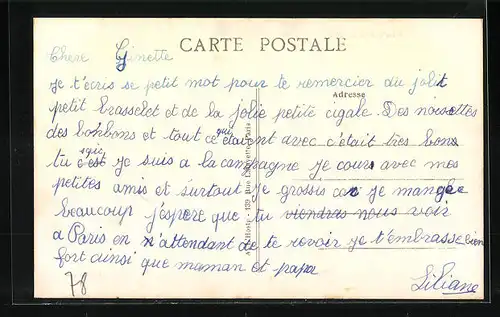 Chere Ginette
CARTE POSTALE
Adresse
je t'écris se petit mot pour te remercier du joli
petit brasselet et de la jolie petite cigale. Des noisettes
des bonbons et tout ce qui étaient avec c'était très bons
tu je suis a la campagne je cours avec mes
petites amis et surtout je grossis car je mange
beaucoup j'espère que tu viendras nous voir
a Paris en n'attendant de te revoir je t'embrasse bien
fort ainsi que maman et papa
Liliane
78